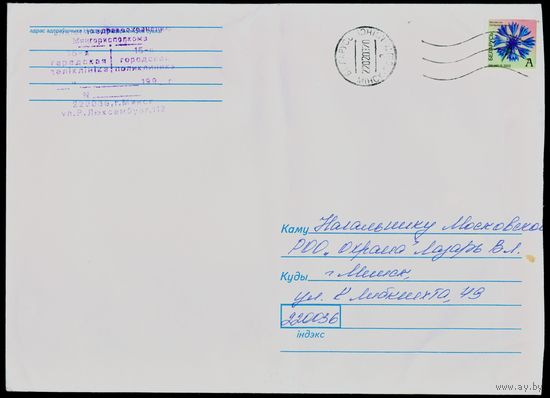 адрас адпраўшчыка
здравоохранения
Мингорисполкома
15-я 15-я
гарадская городская
паліклініка поликлиника
199 г.
N
220036, г. Минск
ул. Р. Люксембург, 112
БЕЛАРУСЬ
A
Каму Начальнику Московского
РОО „Охрана" Лазарь В.Л.
Куды г. Минск,
ул. К Либкнехта, 49
220036
індэкс
www.ay.by